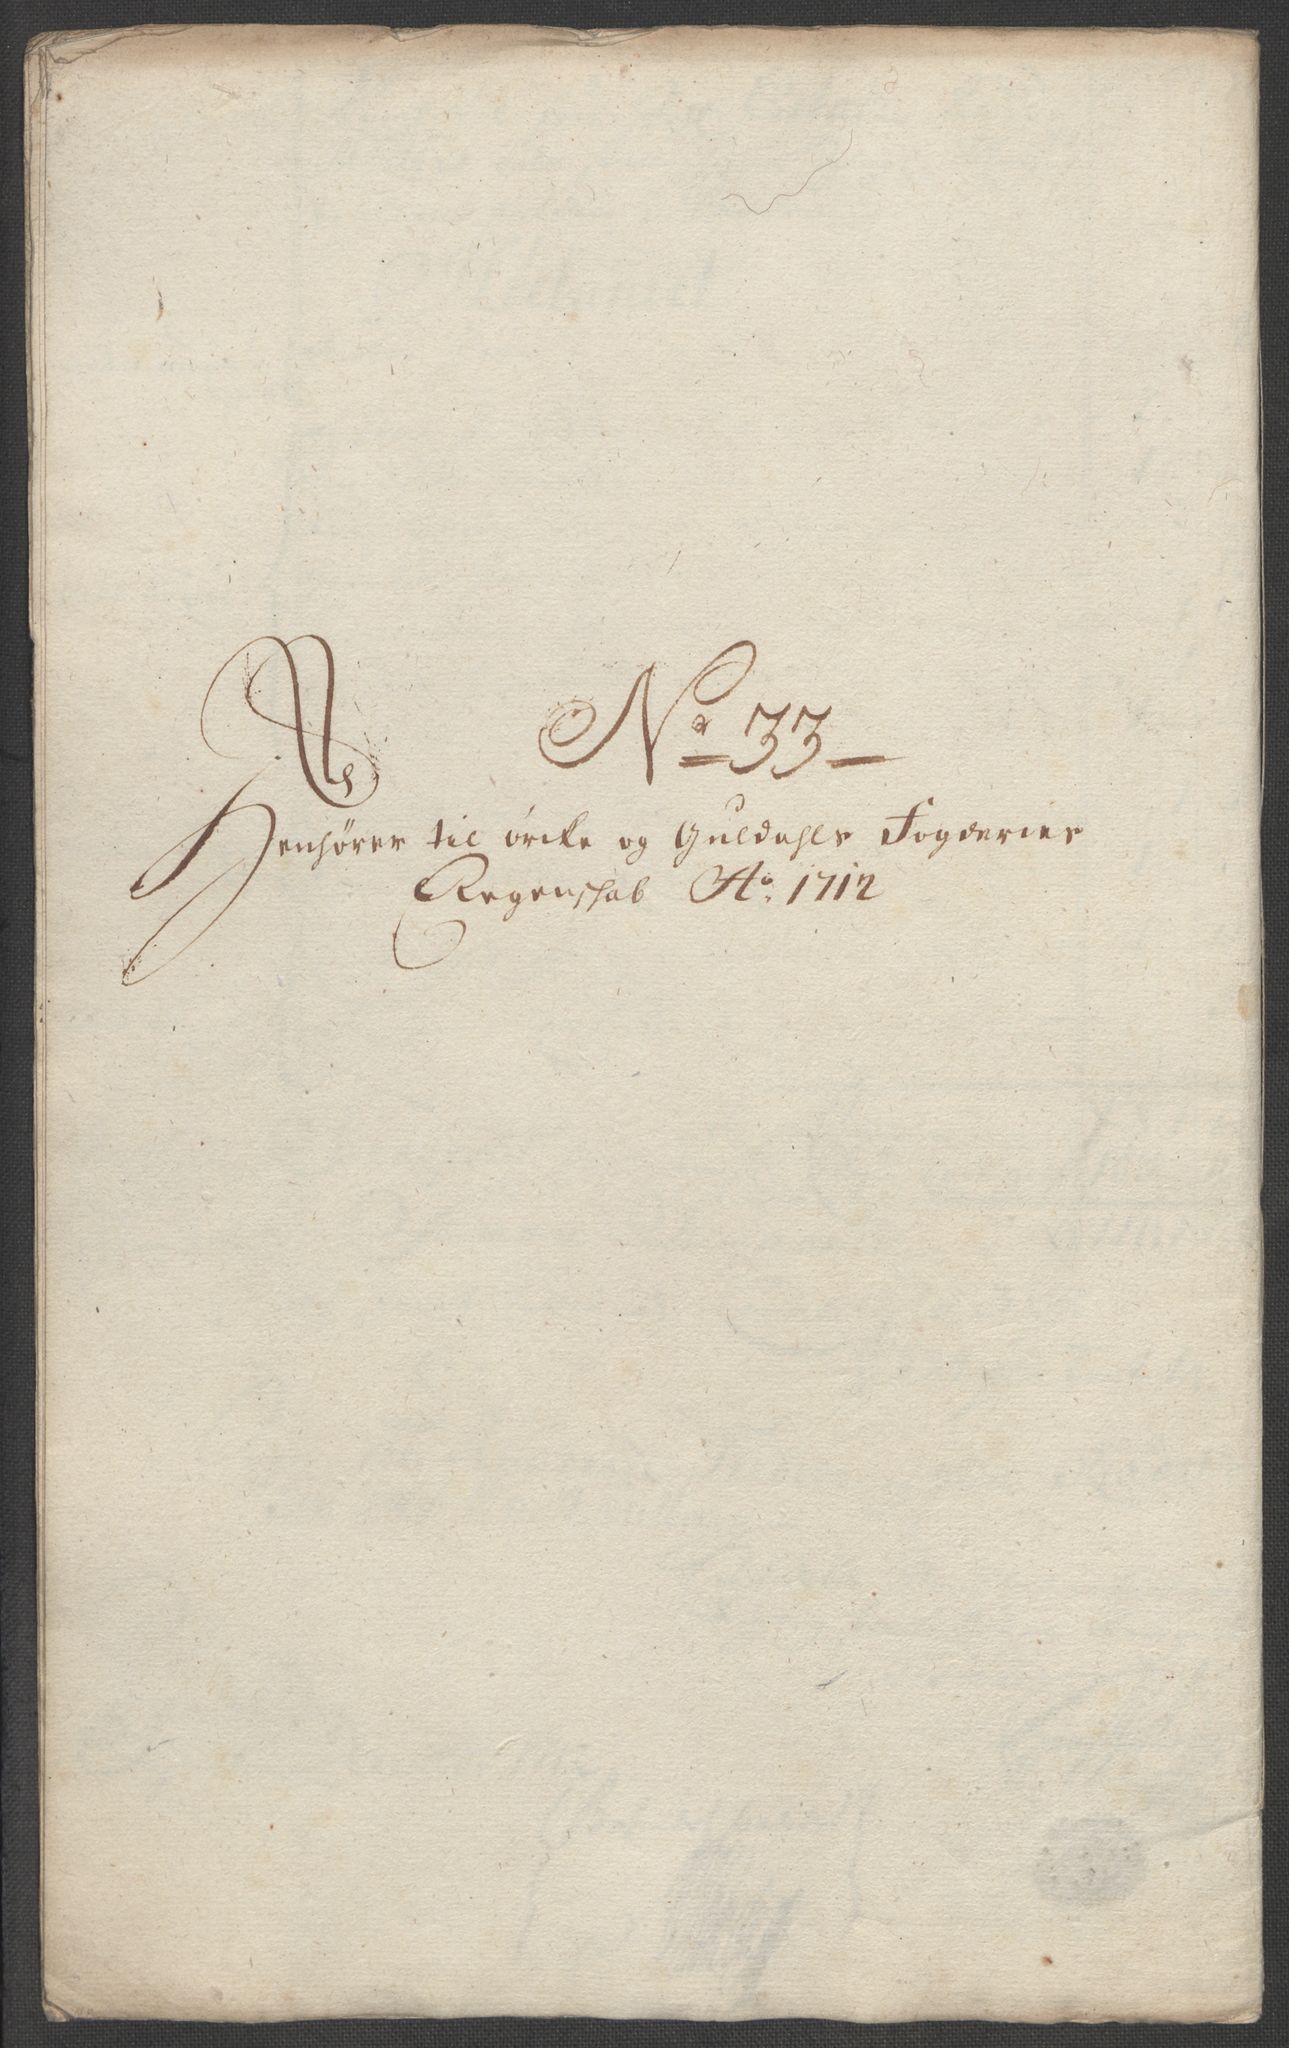 No 33
Henhører til örcke og Guldahls Fogderies
Regenschab Ao. 1712